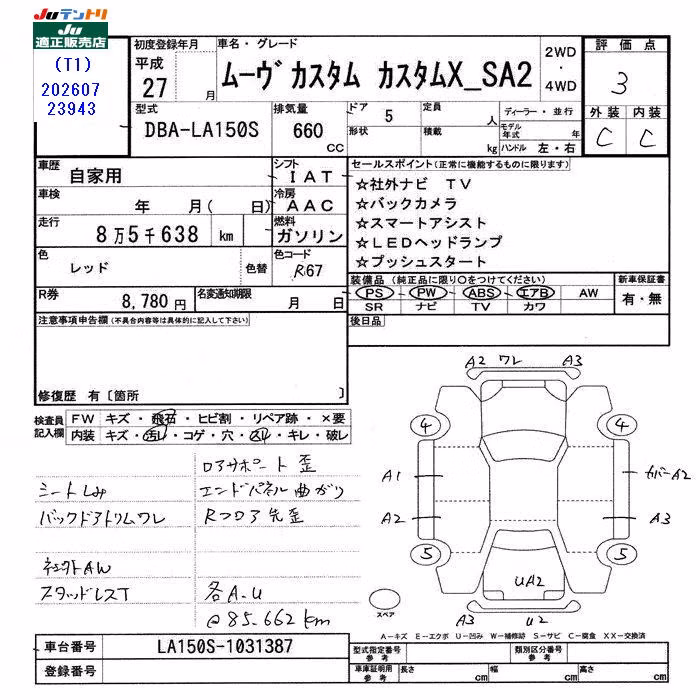 JUテントリ
JU
適正販売店
(T1)
202607
23943
初度登録年月
平成
27 月
車名・グレード
ムーヴカスタム カスタムX_SA2
2WD
・
4WD
評価点
3
外装 内装
C C
型式
DBA-LA150S
排気量
660 CC
ドア 5
形状
定員 人
積載 kg
ディーラー・並行
モデル年式 年
ハンドル 左・右
車歴 自家用
シフト IAT
車検 年 月( 日)
冷房 AAC
走行 8万5千638 km
燃料 ガソリン
色 レッド 色替
色コード R67
R券 8,780円
名変通知期限 月 日
セールスポイント(正常に機能するものに限ります)
☆社外ナビ TV
☆バックカメラ
☆スマートアシスト
☆LEDヘッドランプ
☆プッシュスタート
装備品(純正品に限り○をつけてください)
PS PW ABS エアB AW
SR ナビ TV カワ
新車保証書
有・無
後日品
注意事項申告欄(不具合内容等は具体的に記入して下さい)
修復歴 有〔箇所 〕
検査員記入欄
FW キズ・飛石・ヒビ割・リペア跡・×要
内装 キズ・汚レ・コゲ・穴・スレ・キレ・破レ
ロアサポート歪
シートしみ
エンドパネル曲がり
バックドアトリムワレ
Rフロア先歪
社外AW
スタッドレスT
各A.U
@85.662km
A2 ワレ A3
4 4
A1
カバーA2
A2
A3
5 5
UA2
A3 U2
スペア
A－キズ E－エクボ U－凹み W－補修跡 S－サビ C－腐食 XX－交換済
車台番号 LA150S-1031387
登録番号
型式指定番号 参考
類別区分番号 参考
車庫証明用 参考
長さ cm
幅 cm
高さ cm